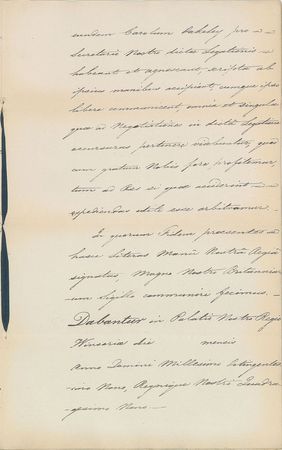 eundem Carolum Oakeley pro
Secretario Nostro dictae Legationis
habeant et agnoscant, scripta ab
ipsius manibus accipiant, cumque ipso
libere communicent, omnia et singula
quae ad Negotiationem in dictâ Legatione
accursuras pertinere videbuntur, quod
cum gratum Nobis fore profitemur,
tum ad Res si quae acciderint
expediendas utile esse arbitramur.
In quorum Fidem praesentes
hasce Literas Manu Nostrâ Regiâ
signatas, Magno Nostro Britanniarum
Sigillo communiri fecimus.
Dabantur in Palatio Nostro Regio
Winsoriae die mensis
Anno Domini Millesimo Octingentes-
imo Nono, Regnique Nostri Quadra-
gesimo Nono.